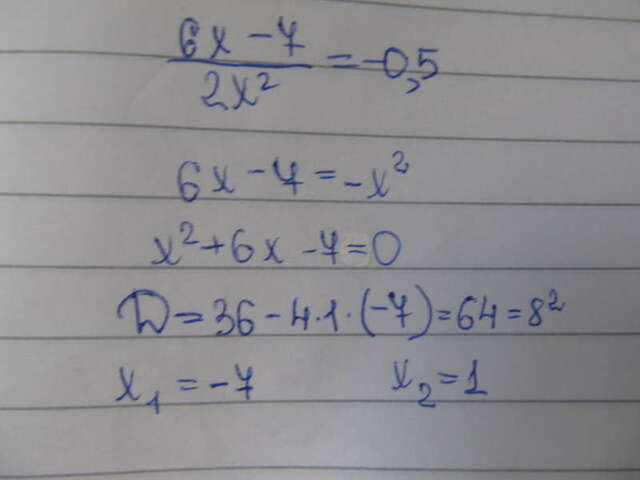 6x - 7 / 2x² = -0,5
6x - 7 = -x²
x² + 6x - 7 = 0
D = 36 - 4·1·(-7) = 64 = 8²
x₁ = -7 x₂ = 1